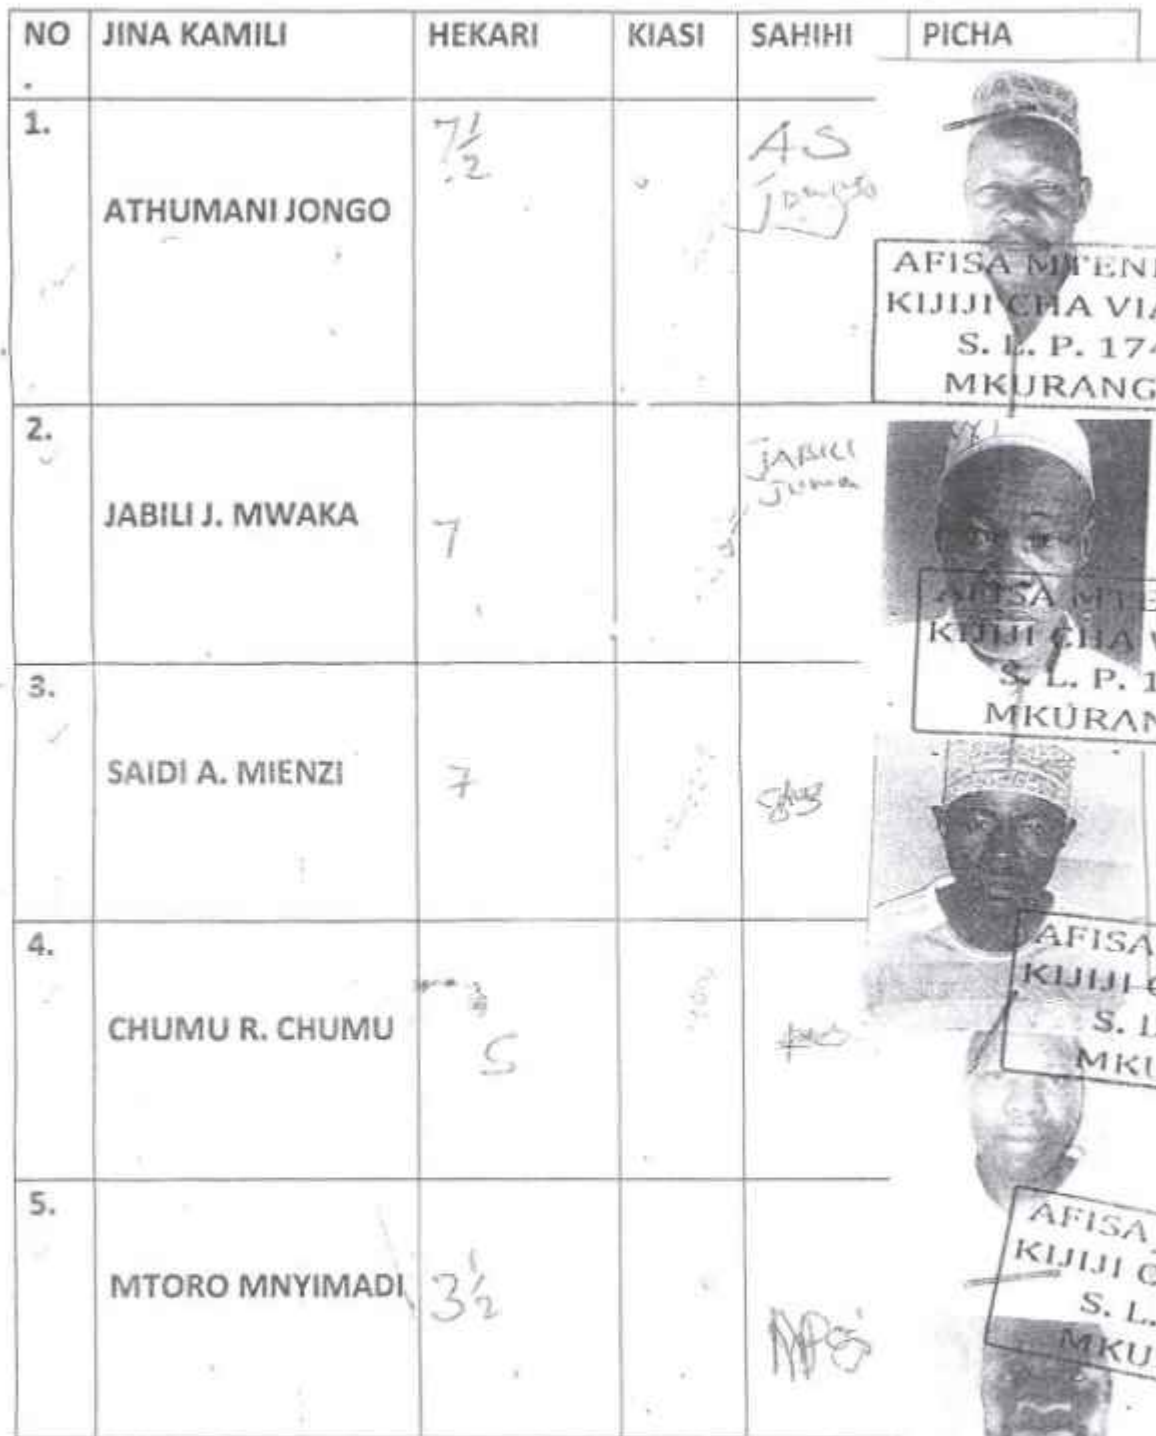 NO JINA KAMILI HEKARI KIASI SAHIHI PICHA
.
1. ATHUMANI JONGO 7½ AS
AFISA MTEN
KIJIJI CHA VIA
S. L. P. 174
MKURANG
2. JABILI J. MWAKA 7 JABILI
Juma
AFISA MTE
KIJIJI CHA V
S. L. P. 1
MKURAN
3. SAIDI A. MIENZI 7
AFISA
KIJIJI C
S. L
MKU
4. CHUMU R. CHUMU 5
AFISA
KIJIJI C
S. L.
MKU
5. MTORO MNYIMADI 3½